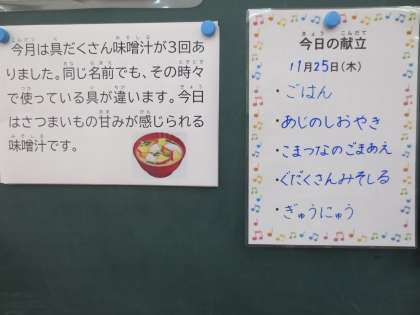 今月は具だくさん味噌汁が3回あ
りました。同じ名前でも、その時々
で使っている具が違います。今日
はさつまいもの甘みが感じられる
味噌汁です。
今日の献立
11月25日(木)
・ごはん
・あじのしおやき
・こまつなのごまあえ
・ぐだくさんみそしる
・ぎゅうにゅう